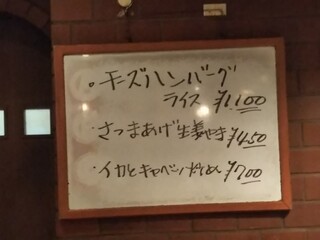 ・チーズハンバーグ
ライス ¥1,100
・さつまあげ生姜やき ¥450
・イカとキャベツ ¥700